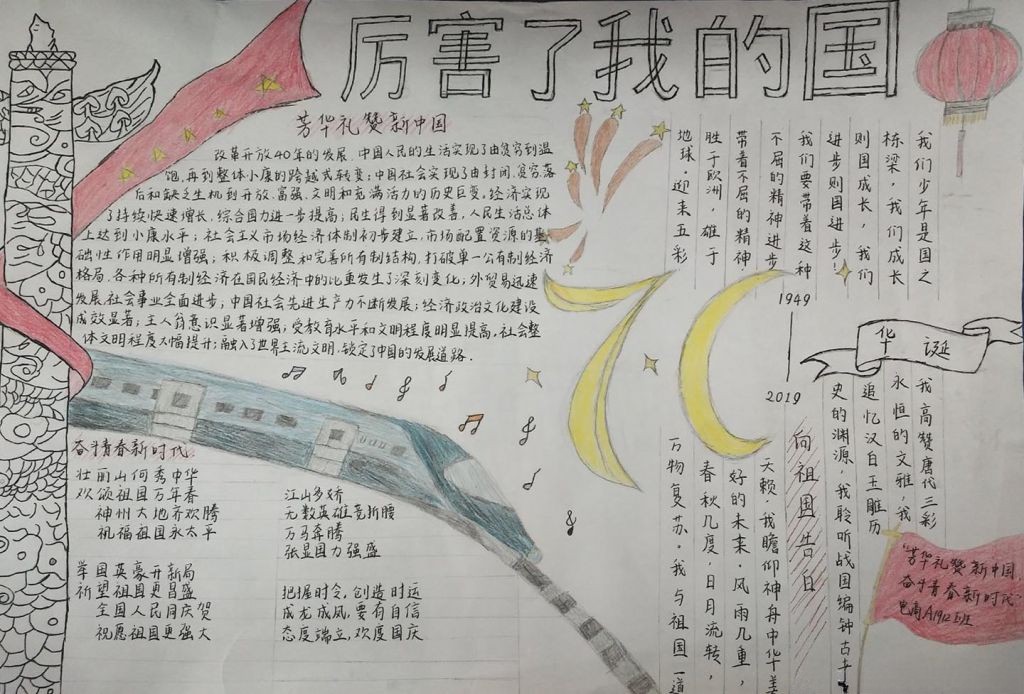 厉害了我的国
芳华礼赞新中国
改革开放40年的发展,中国人民的生活实现了由贫穷到温
饱,再到整体小康的跨越式转变;中国社会实现了由封闭、贫穷、落
后和缺乏生机到开放、富强、文明和充满活力的历史巨变。经济实现
了持续快速增长,综合国力进一步提高;民生得到显著改善,人民生活总体
上达到小康水平;社会主义市场经济体制初步建立,市场配置资源的基
础性作用明显增强;积极调整和完善所有制结构,打破单一公有制经济
格局,各种所有制经济在国民经济中的比重发生了深刻变化;外贸易迅速
发展,社会事业全面进步;中国社会先进生产力不断发展;经济政治文化建设
成效显著;主人翁意识显著增强;受教育水平和文明程度明显提高,社会整
体文明程度大幅提升;融入了世界主流文明,锁定了中国的发展道路.
我们少年是国之
栋梁,我们成长
则国成长,我们
进步则国进步!
我们要带着这种
不屈的精神进步
带着不屈的精神
胜于欧洲,雄于
地球,迎来五彩
1949
2019
华诞
奋斗青春新时代
壮丽山何秀中华
欢颂祖国万年春
神州大地齐欢腾
祝福祖国永太平
举国英豪开新局
祈望祖国更昌盛
全国人民同庆贺
祝愿祖国更强大
江山多娇
无数英雄竞折腰
万马奔腾
张显国力强盛
把握时令,创造时运
成龙成凤,要有自信
态度端立,欢度国庆
向祖国告白
我高赞唐代三彩
永恒的文雅,我
追忆汉白玉雕历
史的渊源,我聆听战国编钟古
天籁,我瞻仰神舟中华美
好的未来,风雨几重,
春秋几度,日月流转,
万物复苏。我与祖国一道
"芳华礼赞新中国,
奋斗青春新时代"
电商A1912班